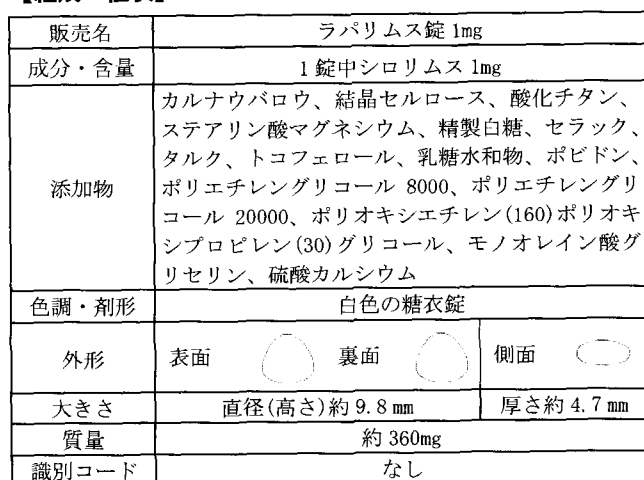 販売名 ラパリムス錠 1mg
成分・含量 1 錠中シロリムス 1mg
添加物
カルナウバロウ、結晶セルロース、酸化チタン、
ステアリン酸マグネシウム、精製白糖、セラック、
タルク、トコフェロール、乳糖水和物、ポビドン、
ポリエチレングリコール 8000、ポリエチレングリ
コール 20000、ポリオキシエチレン(160)ポリオキ
シプロピレン(30)グリコール、モノオレイン酸グ
リセリン、硫酸カルシウム
色調・剤形 白色の糖衣錠
外形 表面 裏面 側面
大きさ 直径(高さ)約 9.8 mm 厚さ約 4.7 mm
質量 約 360mg
識別コード なし